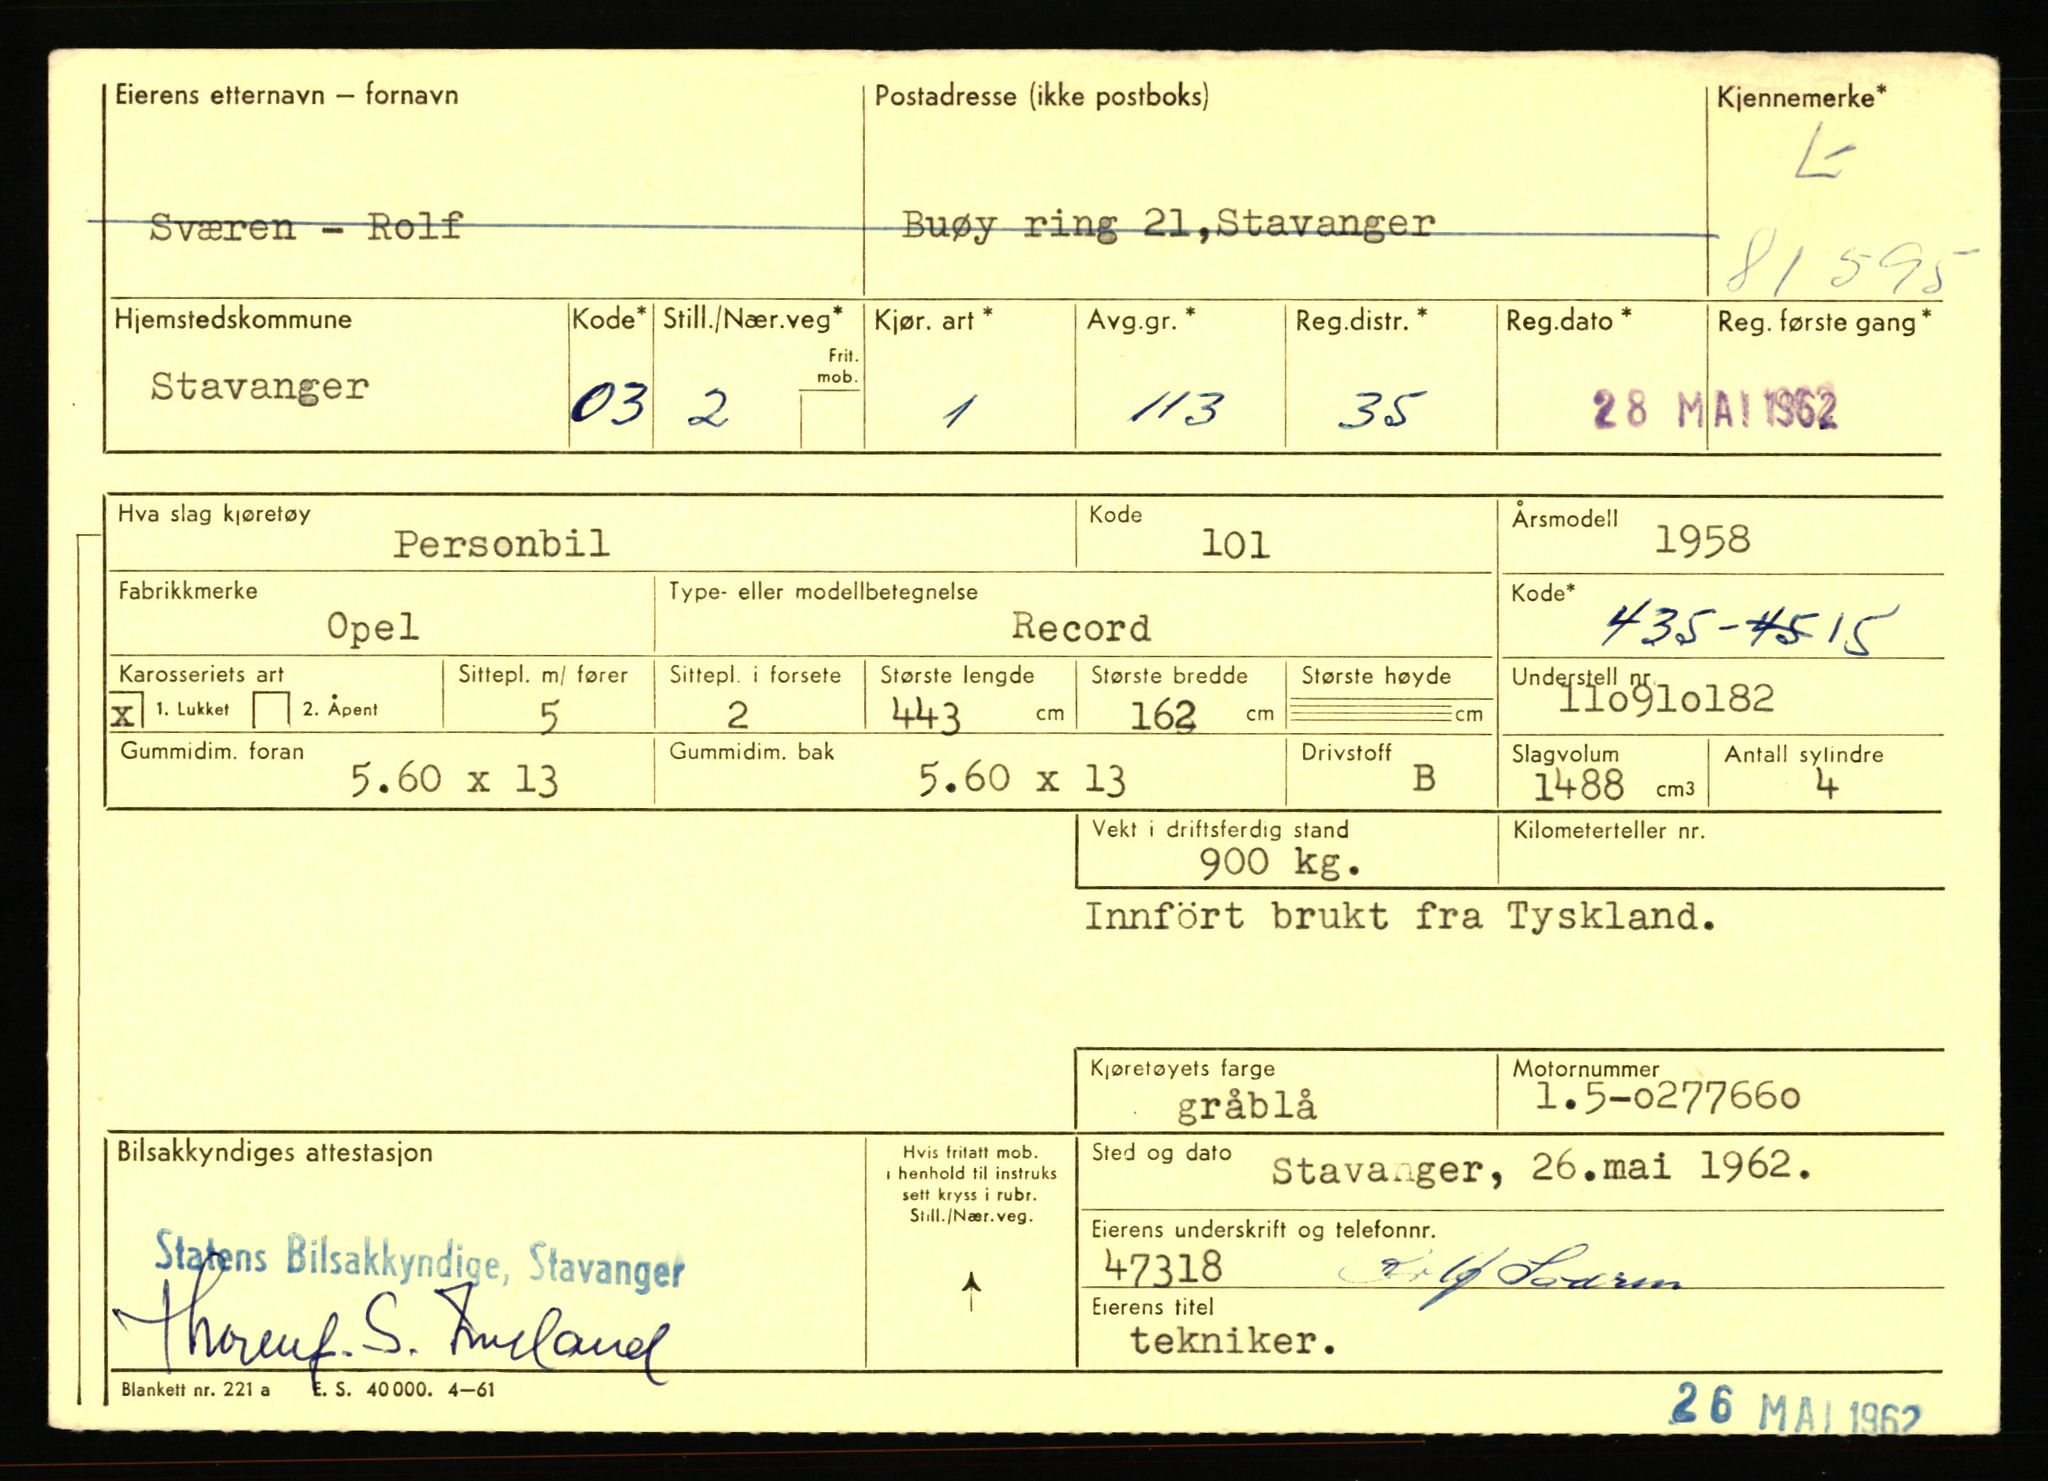 Eierens etternavn – fornavn
Postadresse (ikke postboks)
Kjennemerke*
L-
Sværen - Rolf
Buøy ring 21,Stavanger
81595
Hjemstedskommune
Kode*
Still./Nær.veg*
Kjør. art *
Avg.gr. *
Reg.distr. *
Reg.dato *
Reg. første gang *
Frit.
mob.
Stavanger
03
2
1
113
35
28 MAI 1962
Hva slag kjøretøy
Kode
Årsmodell
Personbil
101
1958
Fabrikkmerke
Type- eller modellbetegnelse
Kode*
Opel
Record
435-4515
Karosseriets art
Sittepl. m/ fører
Sittepl. i forsete
Største lengde
Største bredde
Største høyde
Understell nr.
x 1. Lukket
2. Åpent
5
2
443 cm
162 cm
cm
11o91o182
Gummidim. foran
Gummidim. bak
Drivstoff
Slagvolum
Antall sylindre
5.60 x 13
5.60 x 13
B
1488 cm3
4
Vekt i driftsferdig stand
Kilometerteller nr.
900 kg.
Innfört brukt fra Tyskland.
Kjøretøyets farge
Motornummer
gråblå
1.5-o27766o
Bilsakkyndiges attestasjon
Hvis fritatt mob.
i henhold til instruks
sett kryss i rubr.
Still./Nær.veg.
Sted og dato
Stavanger, 26.mai 1962.
Eierens underskrift og telefonnr.
47318
Rolf Sværen
Statens Bilsakkyndige, Stavanger
S.
Eierens titel
tekniker.
Blankett nr. 221 a E. S. 40 000. 4–61
26 MAI 1962